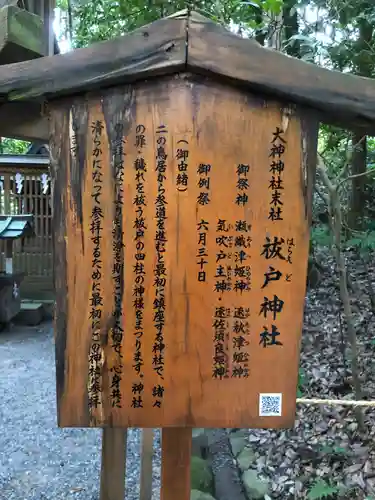 大神神社末社
祓戸神社
はらえ
ど
御祭神 瀬織津姫神・速秋津姫神
気吹戸主神・速佐須良姫神
御例祭 六月三十日
(御由緒)
二の鳥居から参道を進むと最初に鎮座する神社で、諸々
の罪・穢れを祓う祓戸の四柱の神様をまつります。神社
なにより清浄を期すことが大切で、心身共に
清らかになって参拝するために最初にこの神社に参拝